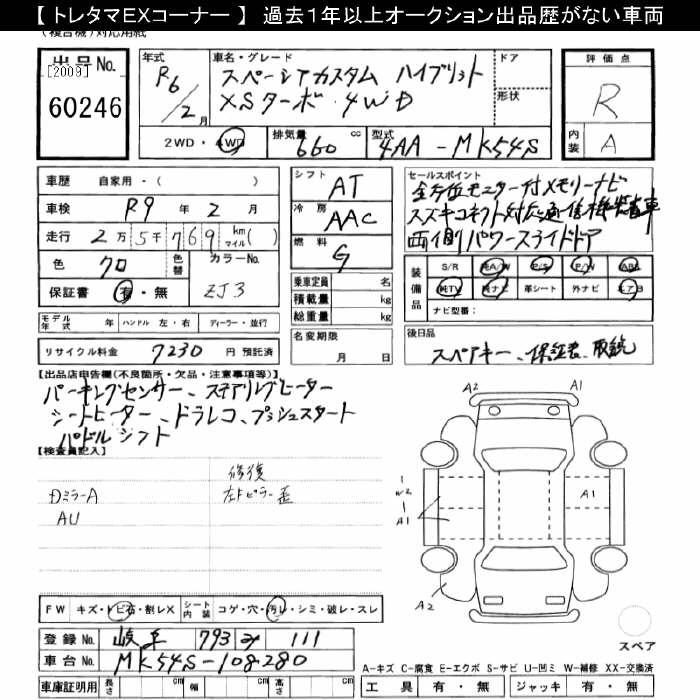 【 トレタマEXコーナー 】 過去1年以上オークション出品歴がない車両
(複合機)対応用紙
出品No.
[2009]
60246
年式
R6/2月
車名・グレード
スペーシアカスタム ハイブリット
XSターボ 4WD
ドア
形状
評価点
R
内装
A
2WD・4WD
排気量
660
cc
型式
4AA-MK54S
車歴 自家用・( )
車検 R9 年 2 月
走行 2万5千769 km マイル( )
色 クロ
色替
カラーNo.
ZJ3
保証書 有・無
モデル年式 年 ハンドル 左・右 ディーラー・並行
リサイクル料金 7230 円 預託済
シフト
AT
冷房
AAC
燃料
G
乗車定員 名
積載量 kg
総重量 kg
名変期限
月 日
セールスポイント
全方位モニター付メモリーナビ
スズキコネクト対応通信機装着車
両側パワースライドドア
装備品
S/R 純A/W P/S P/W ABS
純TV 純ナビ 革シート 外ナビ エアB
ナビ型番:
後日品
スペアキー、保証書、取説
【出品店申告欄(不良箇所・欠品・注意事項等)】
パーキングセンサー、ステアリングヒーター
シートヒーター、ドラレコ、プッシュスタート
パドルシフト
【検査員記入】
修復
DミラーA
左トピラー歪
AU
A2
A1
W2
A1
A1
A2
スペア
FW キズ・トビ石・割レX シート内装 コゲ・穴・汚レ・シミ・破レ・スレ
登録No. 岐阜 793 111
車台No. MK54S-108280
車庫証明用 長さ cm 幅 cm 高さ cm
A-キズ C-腐食 E-エクボ S-サビ U-凹ミ W-補修 XX-交換済
工具 有・無 ジャッキ 有・無